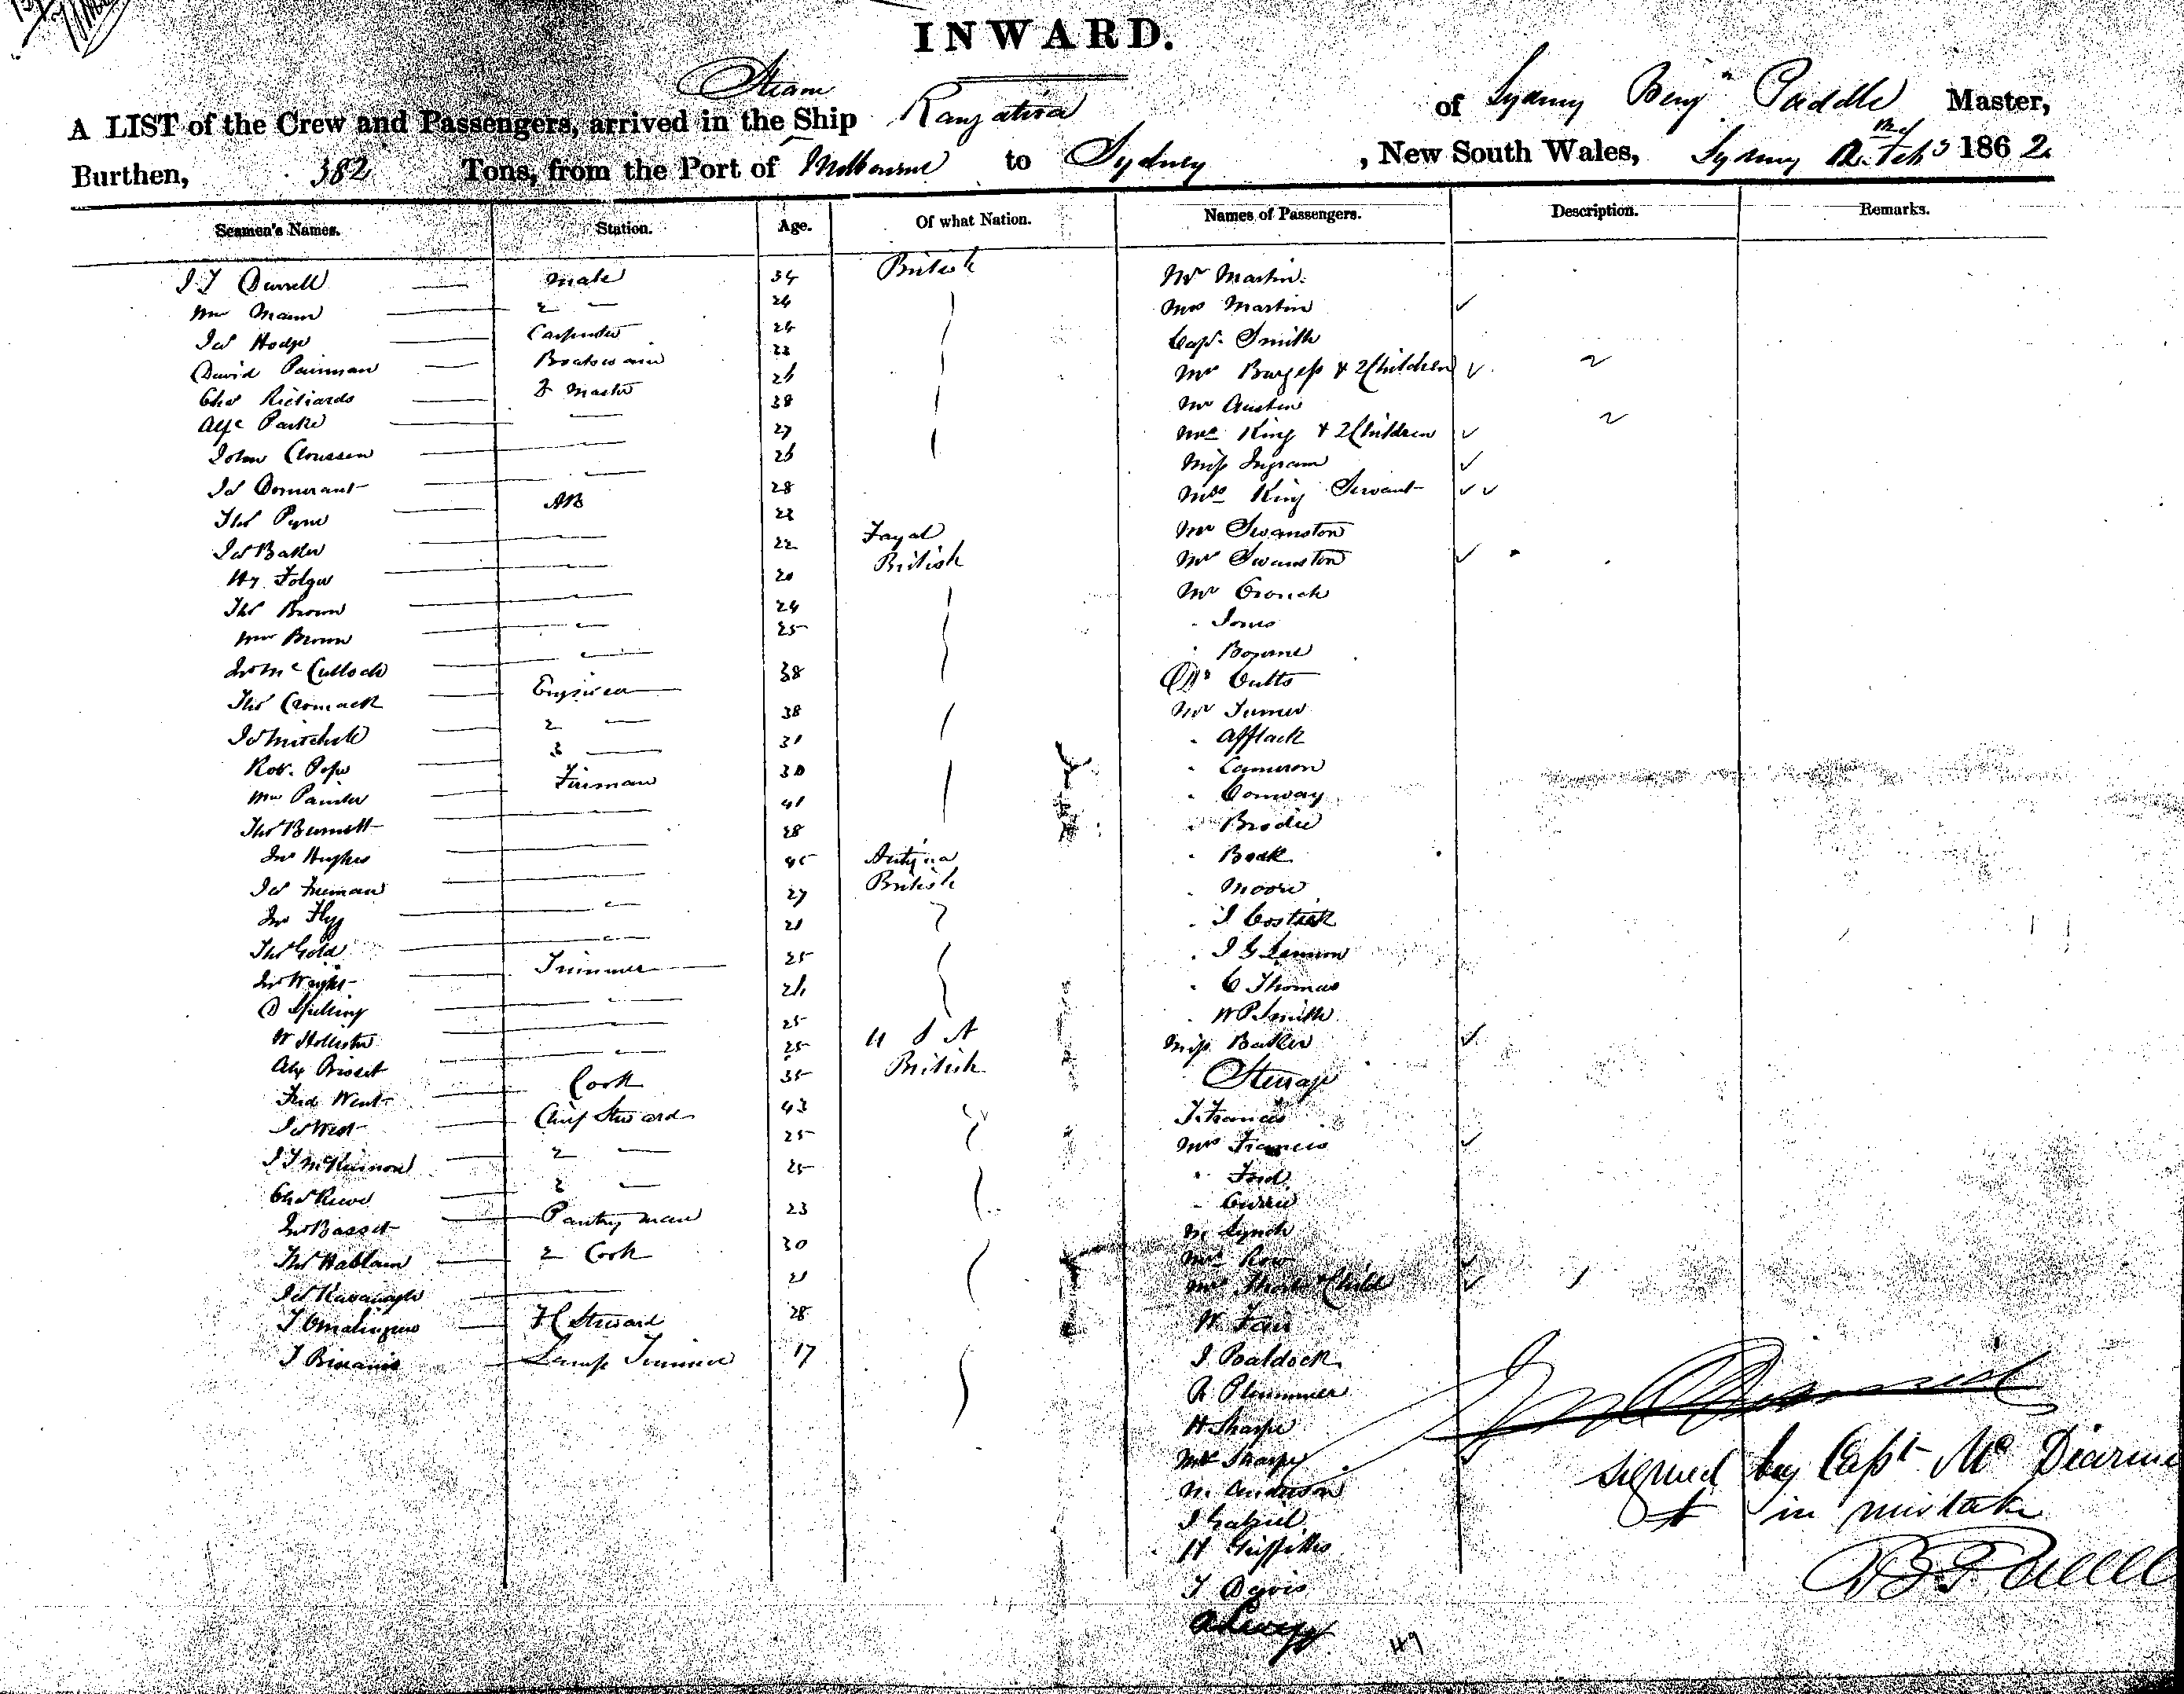 INWARD.
Steam
A LIST of the Crew and Passengers, arrived in the Ship Rangatira of Sydney Benjn Paddle Master,
Burthen, 382 Tons, from the Port of Melbourne to Sydney , New South Wales, Sydney 12 Feb 1862
Seamen's Names. Station. Age. Of what Nation. Names of Passengers. Description. Remarks.
J T Durrell Mate 34 British Mr Martin
Wm Mann 2 — 24 Mrs Martin
Js Hodge Carpenter 24 Capt. Smith
David Painman Boatswain 22 Mrs Burgess & 2 Children 2
Chas Richards Q Master 26 Mr Austin
Alfe Parke — 38 Mrs King & 2 Children 2
John Claussen — 27 Miss Ingram
Js — 26 Mrs King Servant
Thos Pyne AB 28 Mr Swanston
Js Baker — 22 Fayal Mrs Swanston
Hy Folger — 22 British Mr Crouch
Thos Brown — 20 " Jones
Wm Brown — 24 " Bourne
Jno McCulloch — 25 Dr Cutts
Thos Cromack Engineer 38 Mr Turner
Js Mitchell 2 — 38 " Afflack
Robt. Pope 3 — 31 " Cameron
Wm Painter Fireman 30 " Conway
Thos Burnett — 41 " Brodie
Jno Hughes — 28 " Beak
Js Freeman — 45 Antigua " Moore
Jno Flyg — 27 British " J Costick
Thos Gold — 21 " J G Lennon
Jno Wright Trimmer 25 " C Thomas
D Spilling — 26 " W P Smith
W Hollister — 25 U S A Miss Baker
Alex Bisset — 25 British Steerage
Fred Went Cook 35 T. Francis
Js West Chief Steward 43 Mrs Francis
J T McKinnon 2 — 25 " Ford
Chas Reeve 2 — 25 " Currie
Jno Basset Pantry man 23 M Lynch
Thos Hablain 2 Cook 30 Mrs Row
Js Kavanagh — 21 Mrs Short & Child 1
T Steward 28 W Fair
J Lamp Trimmer 17 J Baldock
R Plummer
H Sharpe
Mrs Sharpe
M. Anderson
J Gabriel
H Griffiths
T Davis
49
signed by Capt Mc
in mistake